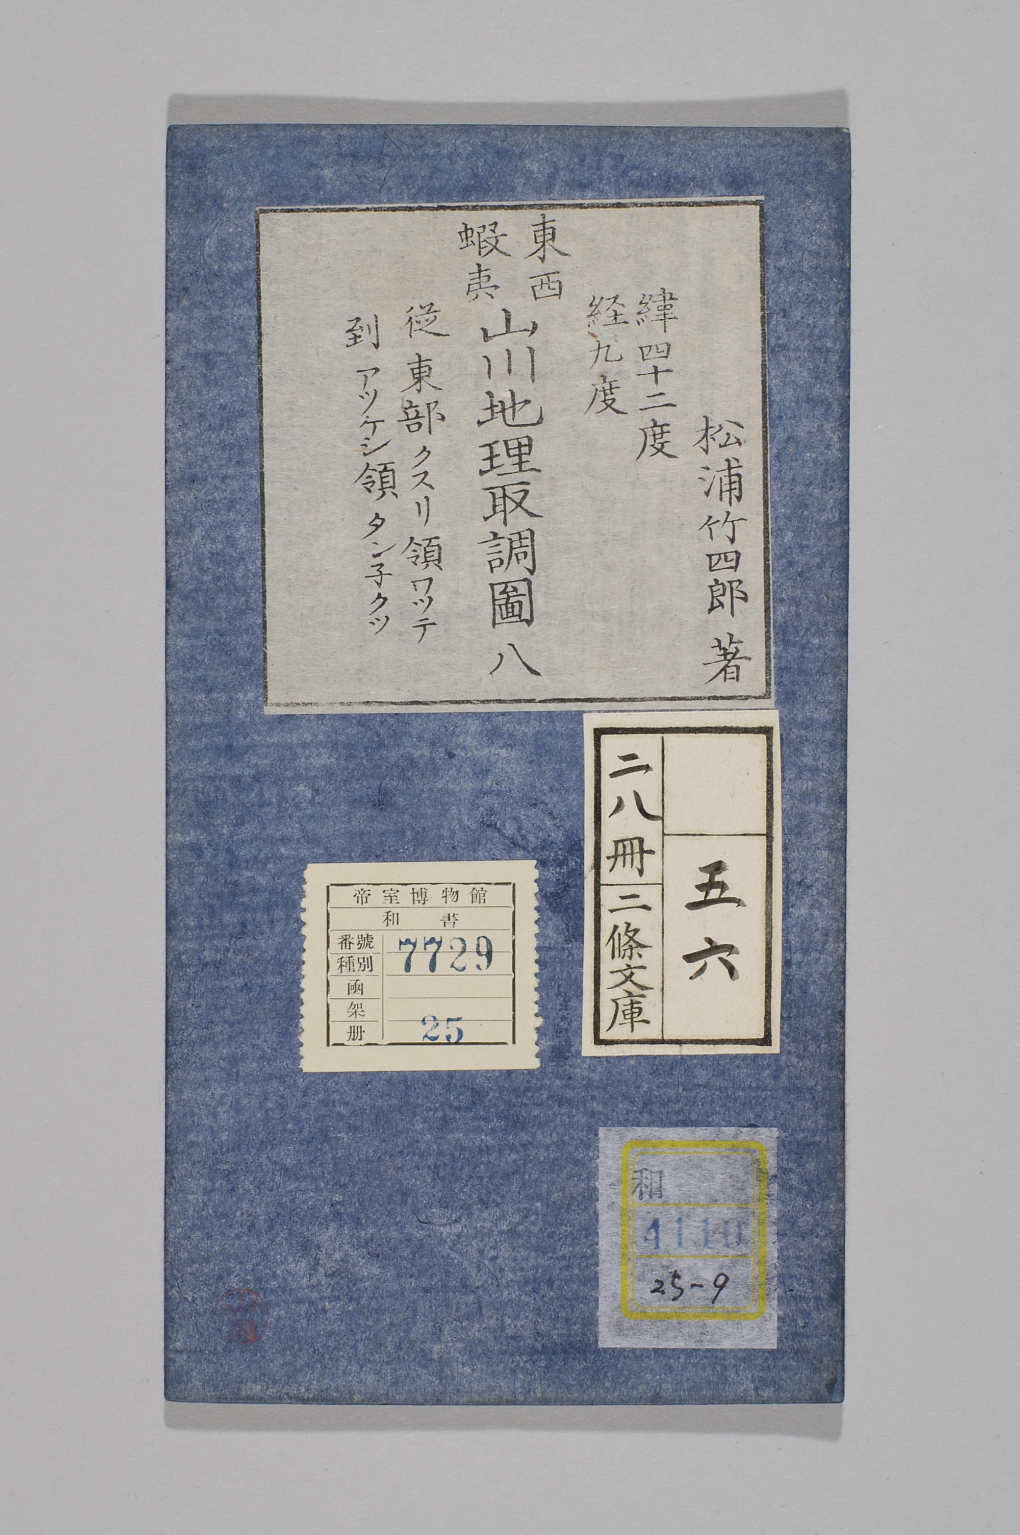 松浦竹四郎 著
緯四十二度
経九度
東西
蝦夷
山川地理取調圖 八
従東部クスリ領ワツテ
到アツケシ領タン子クツ
五六
二八冊
二條文庫
帝室博物館
和書
番號 7729
種別
函
架
册 25
和
4110
25-9